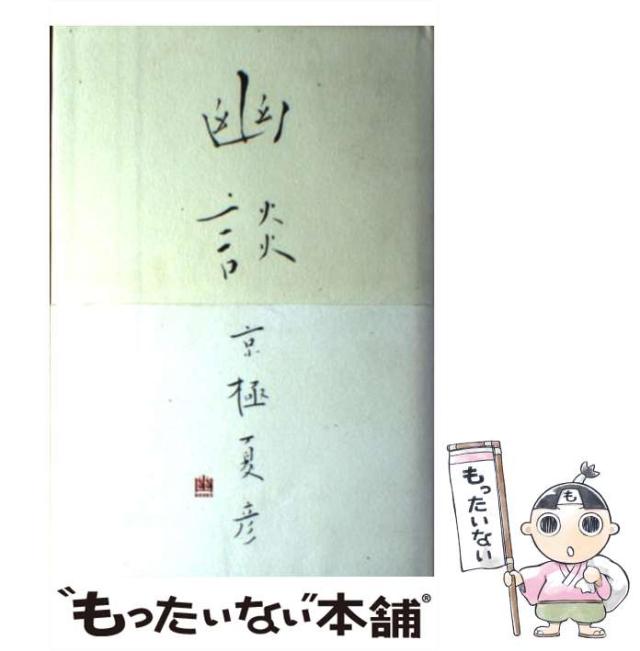 幽談
京極夏彦
幽
もったいない
も
“もったいない”本舗®